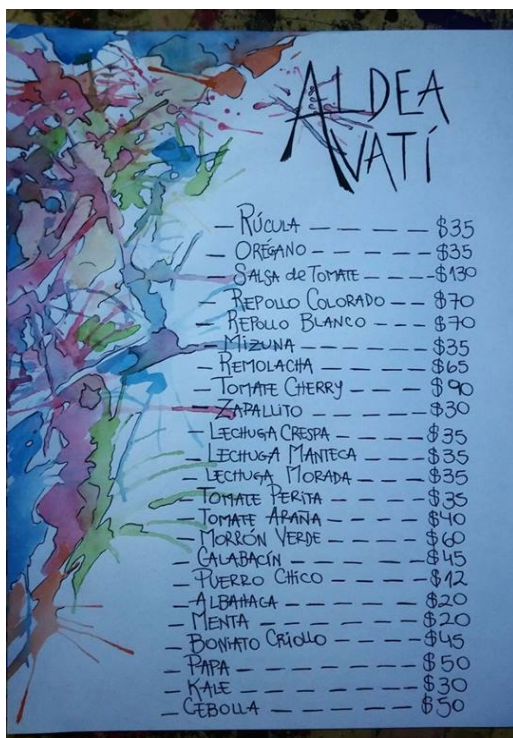 ALDEA
AVATÍ
— RÚCULA — — — — — $35
— ORÉGANO — — — — — $35
— SALSA de TOMATE — — — — $130
— REPOLLO COLORADO — — $70
— REPOLLO BLANCO — — — $70
— MIZUNA — — — — — $35
— REMOLACHA — — — — $65
— TOMATE CHERRY — — — $90
— ZAPALLITO — — — — — $30
— LECHUGA CRESPA — — — — $35
— LECHUGA MANTECA — — — $35
— LECHUGA MORADA — — — $35
— TOMATE PERITA — — — — $35
— TOMATE ARAÑA — — — — $40
— MORRÓN VERDE — — — — $60
— CALABACÍN — — — — — $45
— PUERRO CHICO — — — — $12
— ALBAHACA — — — — — $20
— MENTA — — — — — — $20
— BONIATO CRIOLLO — — — — $45
— PAPA — — — — — — $50
— KALE — — — — — — $30
— CEBOLLA — — — — — $50